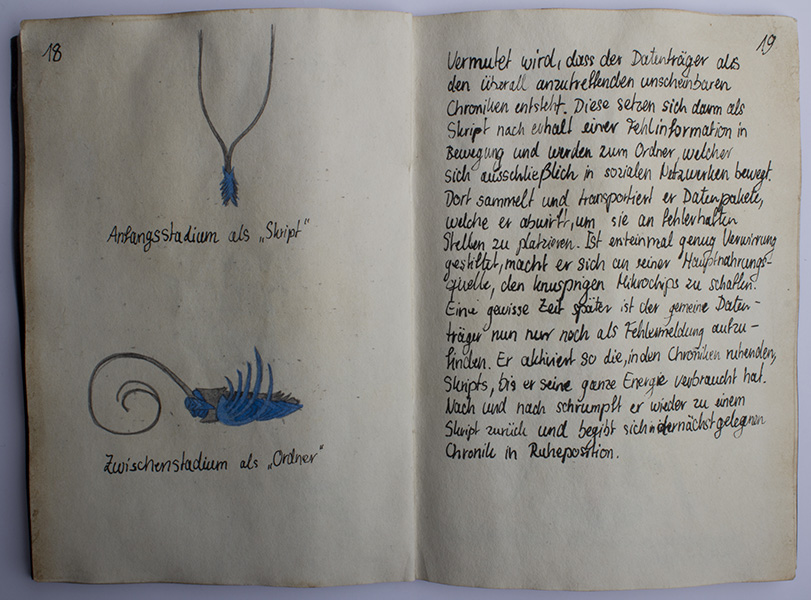 18
Anfangsstadium als „Skript"
Zwischenstadium als „Ordner"
19
Vermutet wird, dass der Datenträger als
den überall anzutreffenden unscheinbaren
Chroniken entsteht. Diese setzen sich dann als
Skript nach erhalt einer Fehlinformation in
Bewegung und werden zum Ordner, welcher
sich ausschließlich in sozialen Netzwerken bewegt.
Dort sammelt und transportiert er Datenpakete,
welche er abwirft, um sie an fehlerhaften
Stellen zu platzieren. Ist ersteinmal genug Verwirrung
gestiftet, macht er sich an seiner Hauptnahrungs-
quelle, den knusprigen Mikrochips zu schaffen.
Eine gewisse Zeit später ist der gemeine Daten-
träger nun nur noch als Fehlermeldung aufzu-
finden. Er aktiviert so die, in den Chroniken ruhenden,
Skripts, bis er seine ganze Energie verbraucht hat.
Nach und nach schrumpft er wieder zu einem
Skript zurück und begibt sich in der nächst gelegenen
Chronik in Ruheposition.